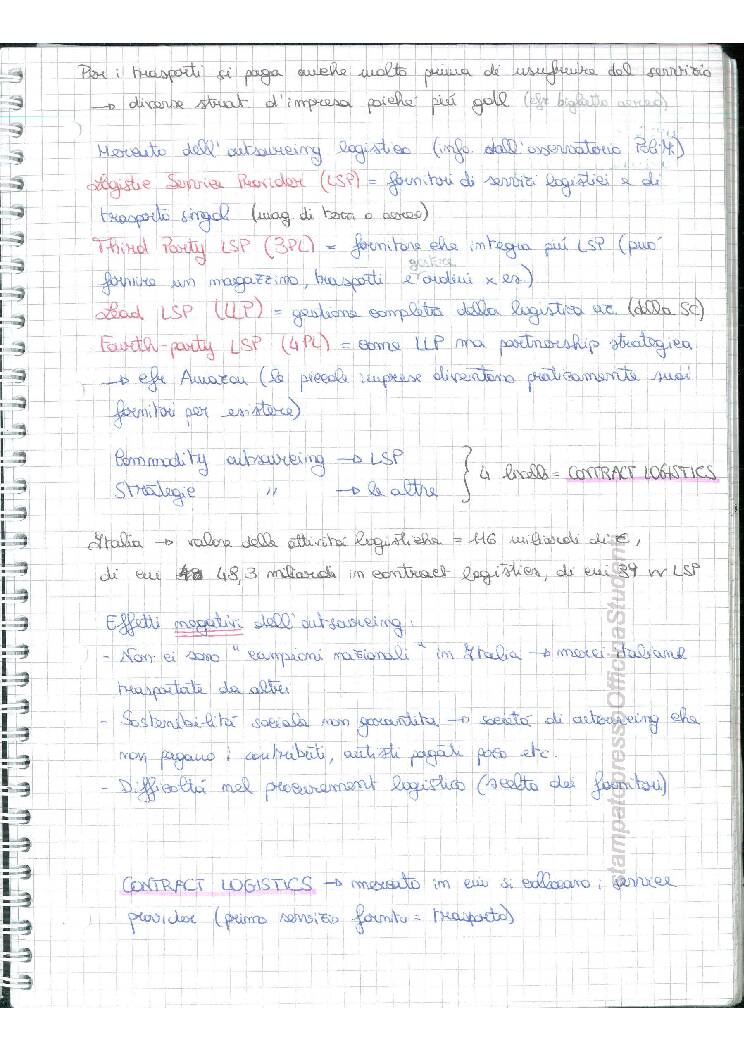 Per i trasporti si paga anche molto prima di usufruire del servizio
→ diverse strat. d'impresa poiché più goll (cfr biglietto aereo)
Mercato dell'outsourcing logistico (info. dall'osservatorio PoliMi)
Logistic Service Provider (LSP) = fornitori di servizi logistici e di
trasporto singol (mag. di terra o aereo)
Third Party LSP (3PL) = fornitore che integra più LSP (può
gestire
fornire un magazzino, trasporti e ordini x es.)
Lead LSP (LLP) = gestione completa della logistica az. (della SC)
Fourth-party LSP (4PL) = come LLP ma partnership strategica
→ cfr Amazon (le piccole imprese diventano praticamente suoi
fornitori per esistere)
Commodity outsourcing → LSP
Strategic " → le altre
4 livelli = CONTRACT LOGISTICS
Italia → valore delle attività logistiche = 116 miliardi di €,
di cui 48,3 miliardi in contract logistics, di cui 39 in LSP
Effetti negativi dell'outsourcing:
- Non ci sono "campioni nazionali" in Italia → merci italiane
trasportate da altri
- Sostenibilità sociale non garantita → società di outsourcing che
non pagano i contributi, autisti pagati poco etc.
- Difficoltà nel procurement logistico (scelta dei fornitori)
CONTRACT LOGISTICS → mercato in cui si collocano i service
provider (primo servizio fornito = trasporto)
stampatopressoOfficinaStudenti